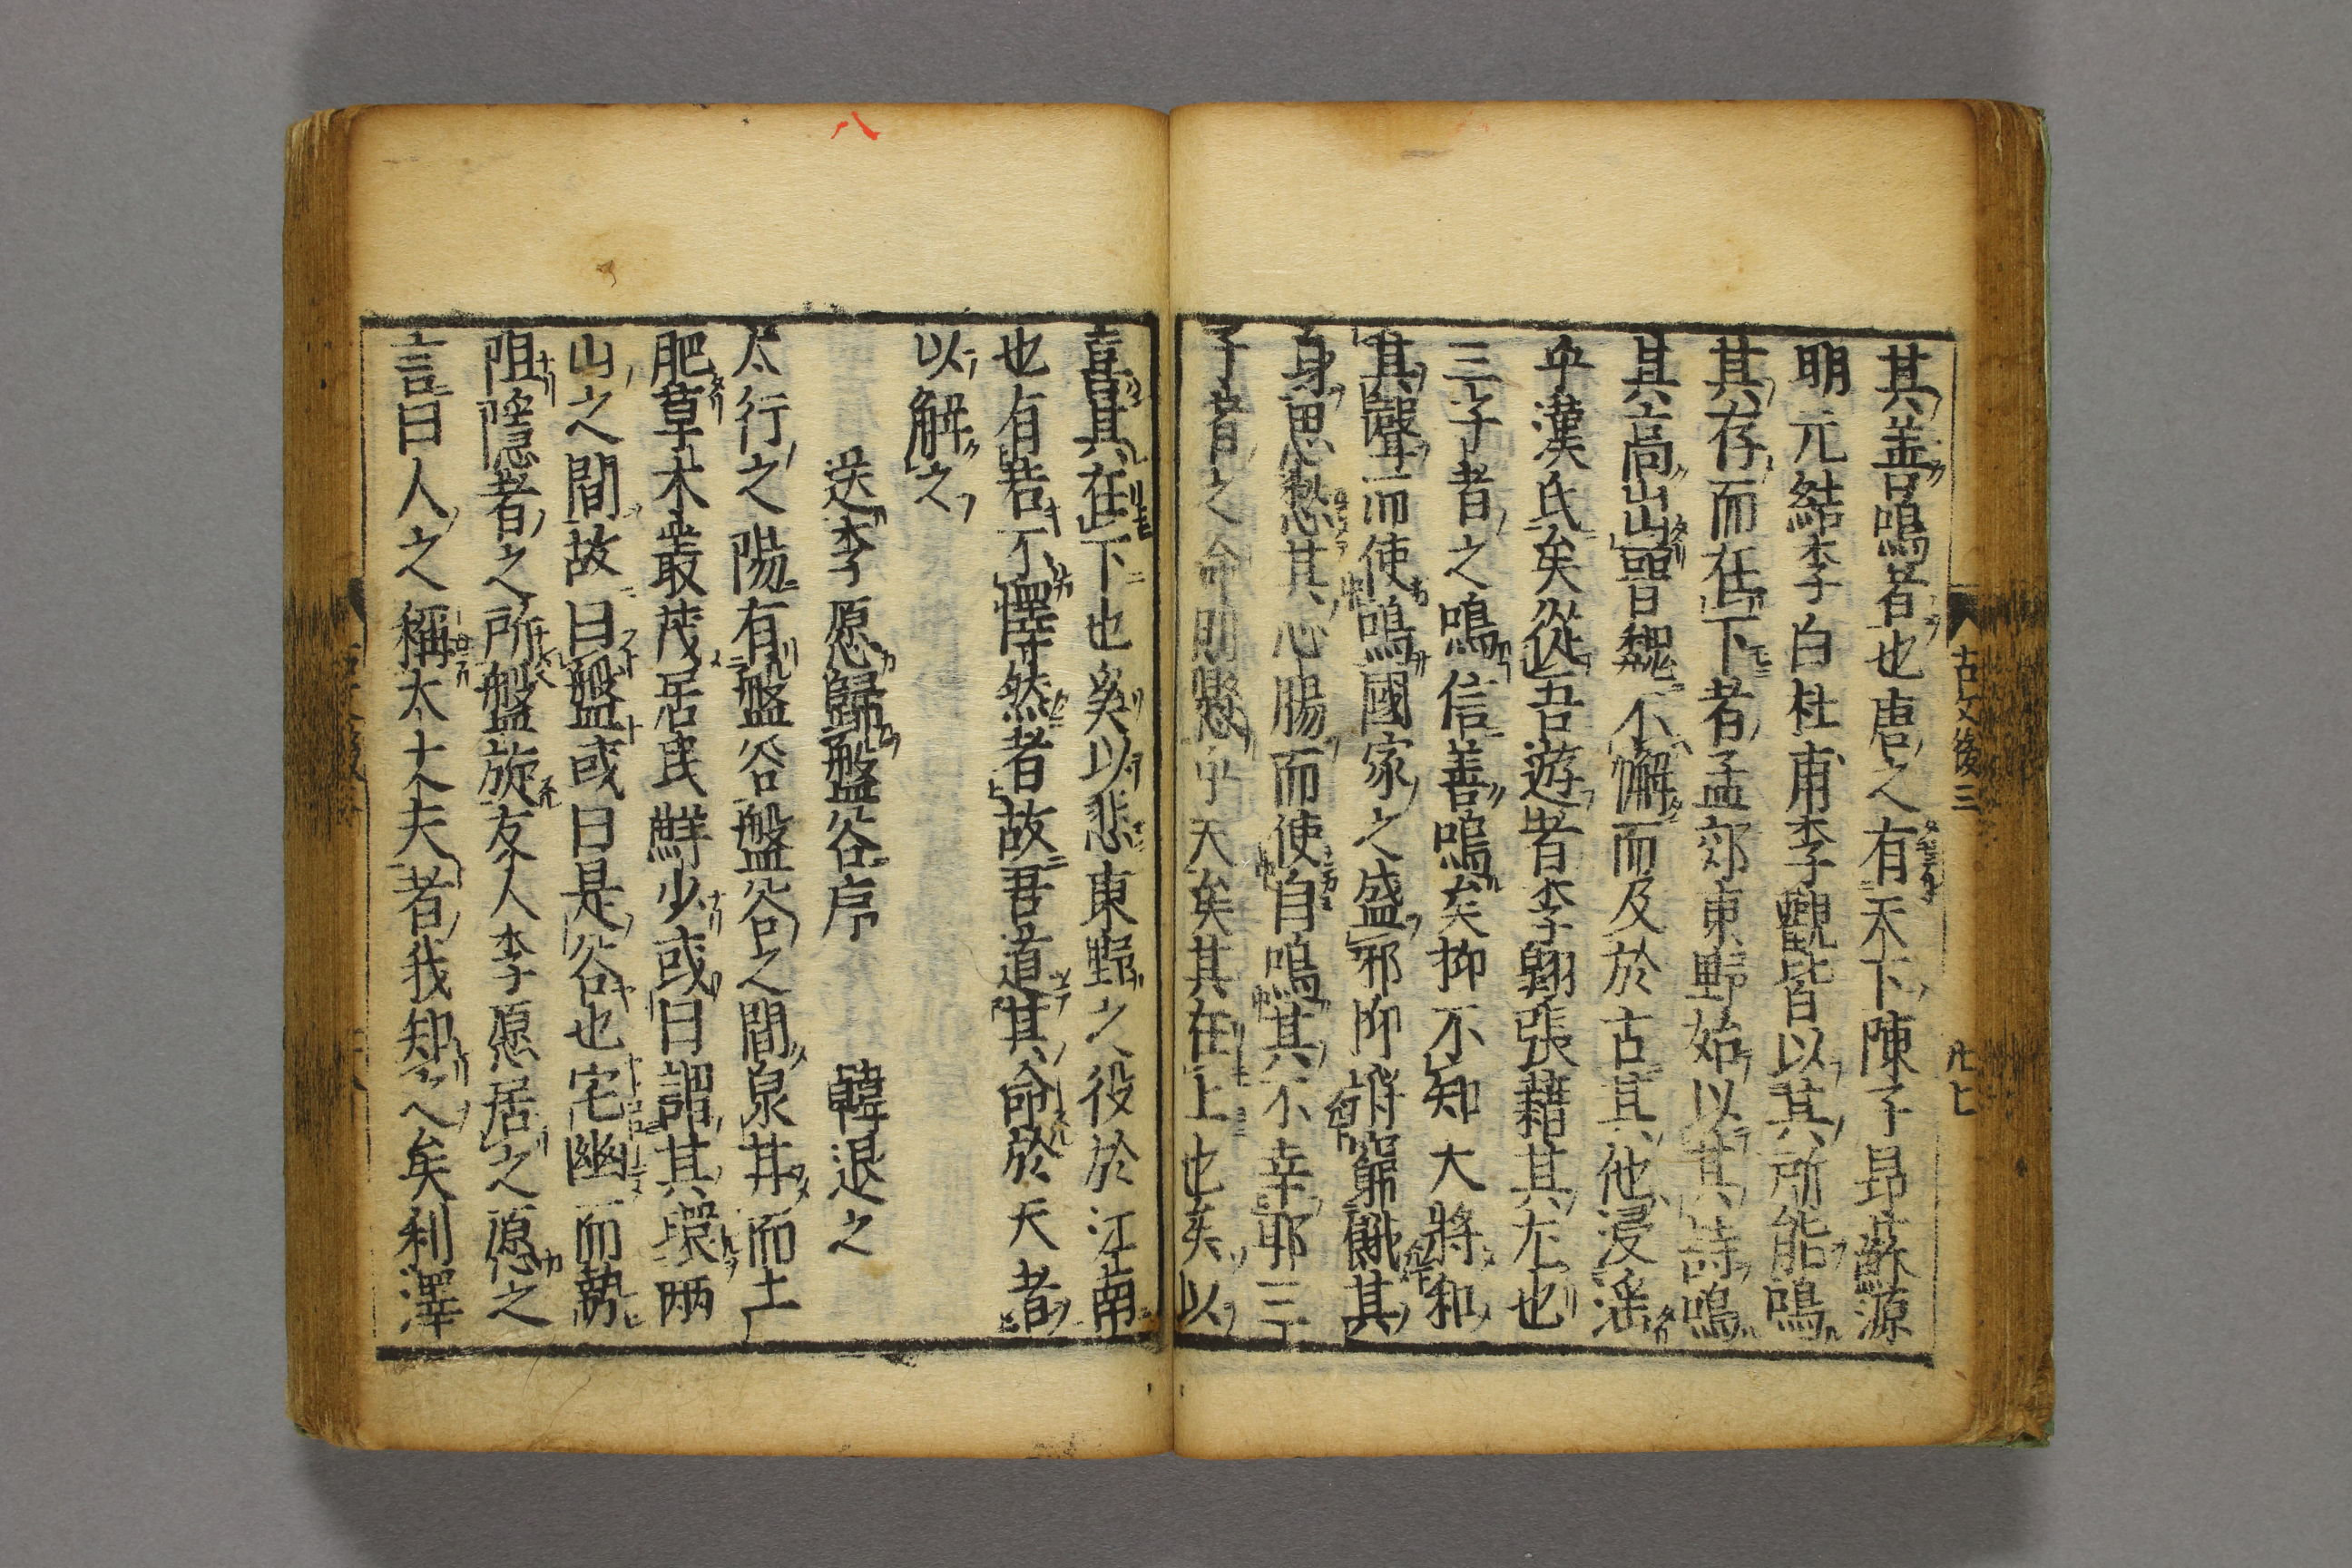 其善鳴者也唐之有天下陳子昂蘇源
明元結李白杜甫李觀皆以其所能鳴
其存而在下者孟郊東野始以其詩鳴
其高出晉魏不懈而及於古其他浸淫
乎漢氏矣從吾遊者李翱張藉其尤也
三子者之鳴信善鳴矣抑不知大將和
其聲而使鳴國家之盛邪抑將窮餓其
身思愁其心腸而使自鳴其不幸耶三
子者之命則懸乎天矣其在上也奚以
喜其在下也奚以悲東野之役於江南
也有若不懌然者故吾道其命於天者
以解之
送李愿歸盤谷序 韓退之
太行之陽有盤谷盤谷之間泉甘而土
肥草木叢茂居民鮮少或曰謂其環兩
山之間故曰盤或曰是谷也宅幽而勢
阻隱者之所盤旋友人李愿居之愿之
言曰人之稱大丈夫者我知之矣利澤
古文後三
廿七
八